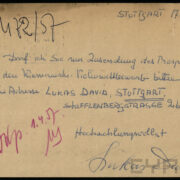 472/57
STUTTGART 17
Darf ich Sie um Zusendung des Prosp
den Wieniawski Violinwettbewerb bitten
Adresse LUKAS DAVID, STUTTGART,
STAFFLENBERGSTRASSE 26
Hochachtungsvollst
1.4.57
Lukas David